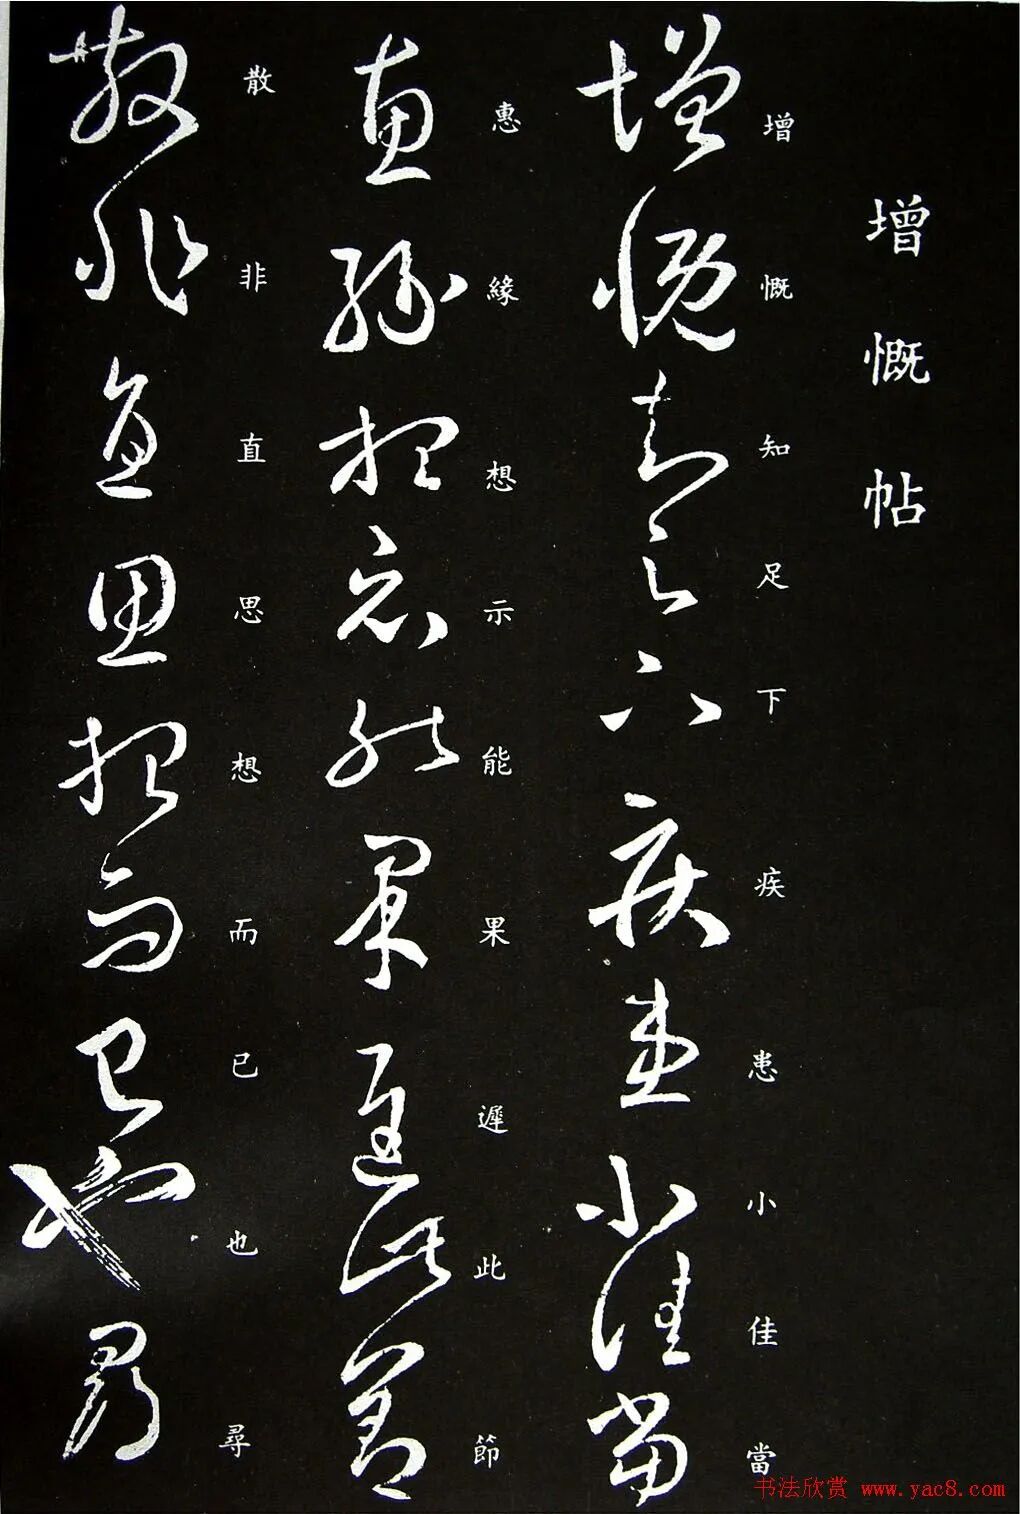 增慨帖
增慨知足下疾患小佳當
增慨知足下疾患小佳當
惠緣想示能果遲此節
惠緣想示能果遲此節
散非直思想而已也尋
散非直思想而已也尋
书法欣赏 www.yac8.com